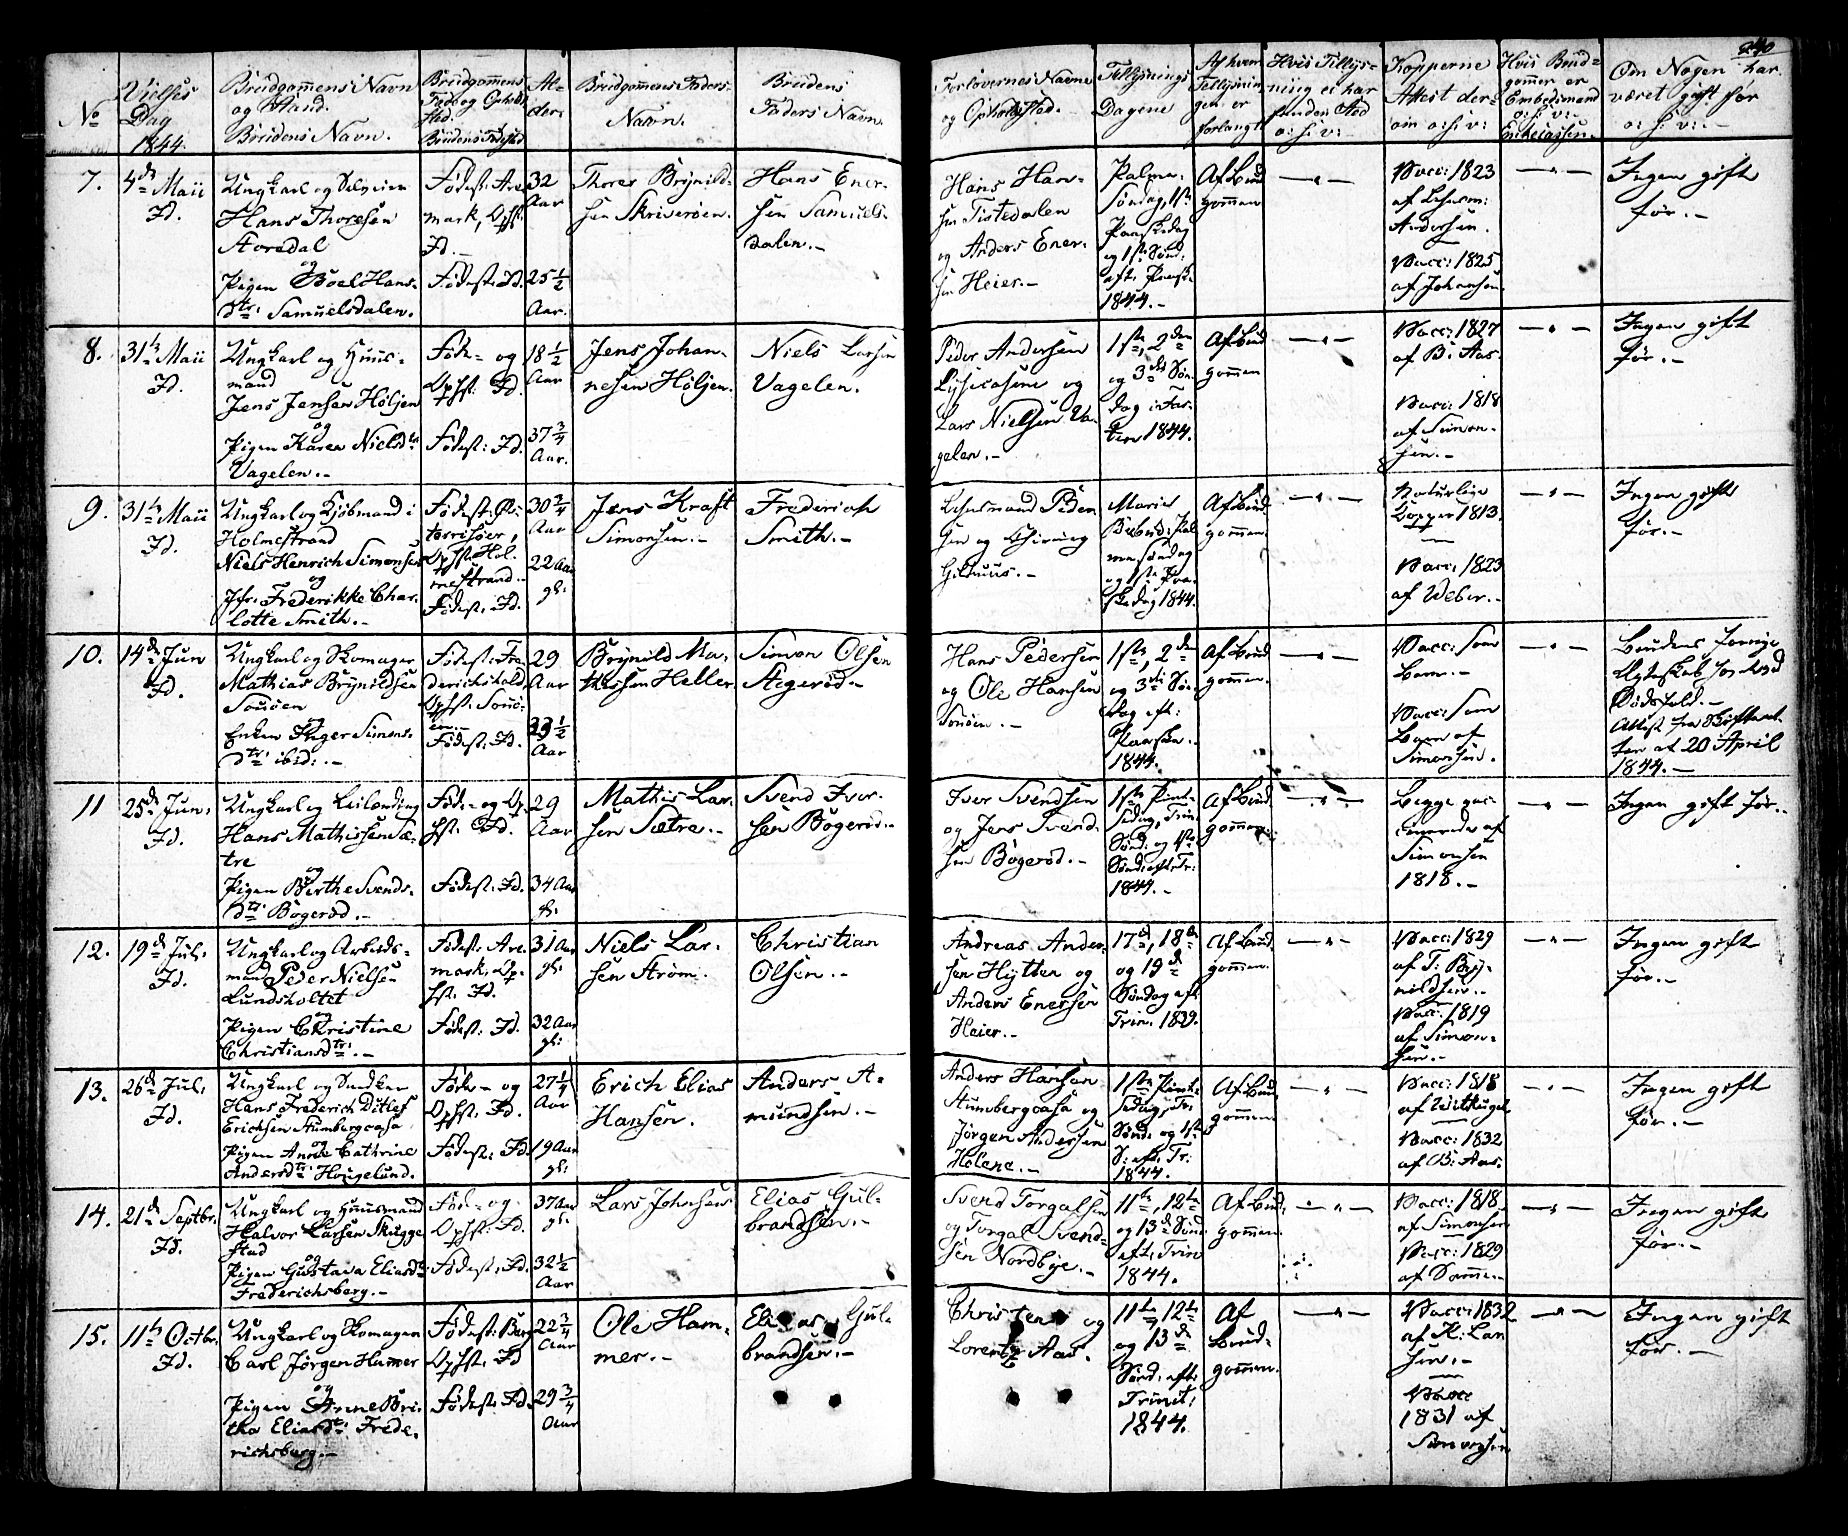 240
No
Vielses
Dag
1844.
Brudgommens Navn
og Stand.
Brudens Navn.
Brudgommens
Føde og Opholds
Sted.
Brudens Fødested
Al-
der.
Brudgommens Faders
Navn.
Brudens
Faders Navn.
Forlovernes Navne
og Opholdssted.
Tillysnings
Dagene
Af hvem
Tillysnin-
gen er
forlangt.
Hvis Tillys-
ning ei har
funden Sted
o: s: v:
Kopperne
Attest der-
om o: s: v:
Hvis Brud-
gommen er
Embedsmand
o: s: v:
Enkelassen.
Om Nogen har
været gift før
o: s: v:
7.
4de Maii
Id.
Ungkarl og
Hans Thoresen
Storedal
og
Pigen Boel Hans-
dtr: Samuelsdalen.
Fødest: Are
mark, Ophst:
Id.
Fødest: Id.
32
Aar
25 1/2
Aar.
Thores Brynild-
sen Skriverøen.
Hans Ener-
sen Samuels-
dalen.
Hans Han-
sen Tistedalen
og Anders Ener-
sen Heier.
Palme-
Søndag, 1ste
Paaskedag
og 1ste Sønd.
eft: Paask.
1844.
Af Brud
gommen
Vacc: 1823
af Lehnsm:
Andersen.
Vacc: 1825
af Johansen.
Ingen gift
før.
8.
31te Maii
Id.
Ungkarl og Huus-
mand
Jens Jensen Høljen
og
Pigen Karen Nielsdtr
Vagelen.
Føde- og
Ophst: Id.
Fødest: Id.
18 1/2
Aar
37 3/4
Aar.
Jens Johan-
nesen Høljen.
Niels Larsen
Vagelen.
Peder Andersen
og
Lars Nielsen Va-
gelen.
1ste, 2den
og 3die Søn-
dag i Fas-
ten 1844.
Af Brud
gommen
Vacc: 1827
af B: Aas.
Vacc: 1818
af Simon-
sen.
Ingen gift
før.
9.
31te Maii
Id.
Ungkarl og Kjøbmand i
Holmestrand
Niels Henrich Simonsen
og
Jfr: Frederikke Char-
lotte Smith.
Fødest: Øs-
terrisøer,
Ophst: Hol-
mestrand.
Fødest: Id.
30 3/4
Aar
22 Aar
gl:
Jens Kraft
Simonsen.
Frederich
Smith.
Lehnsmand Peder-
sen og
Maria
Bebud: Pal
mesøndag
og 1ste Paa-
skedag 1844.
Af Brud
gommen.
Naturlige
Kopper 1813.
Vacc: 1823
af Weber.
Ingen gift
før.
10.
14de Jun
Id.
Ungkarl og Skomager
Mathias Brynildsen
Souøen
og
Enken Inger Simens-
dtr: ibid:
Fødest: Fre-
derichshald
Ophst: Souø-
en.
Fødest: Id.
29
Aar
33 1/2
Aar
Brynild Ma-
thissen Heller
Simon Olsen
Aegerød.
Hans Pedersen
og Ole Hansen
Souøen.
1ste, 2den
og 3die Søn-
dag eft:
Paasken.
1844.
Af Brud
gommen.
Vacc: som
Barn.
Vacc: som
Barn af
Simonsen.
Brudens forrige
Ægteskab ved
Dødsfald.
Attest fra Skifteret-
ten at 20 April
1844.
11
25de Jun:
Id.
Ungkarl og Leilending
Hans Mathissen Sæ-
tre
og
Pigen Birthe Svends-
dtr: Bøgerød.
Føde- og Op-
hst: Id.
Fødest: Id.
29
Aar
34 Aar
gl:
Mathis Lar-
sen Sætre.
Svend Iver-
sen Bøgerød.
Iver Svendsen
og Jens Svend-
sen Bøgerød.
1ste Pint-
sedag, Trin:
Sønd: og 1ste
Sønd: eft: Tr:
1844.
Af Brud
gommen.
Begge vac-
cinerede af
Simonsen
1818.
Ingen gift før.
12.
19de Jul:
Id.
Ungkarl og Arbeids-
mand Peder Nielsen
Lundsholtet
og
Pigen Christine
Christiansdtr:
Fødest: Are
mark, Op-
hst: Id.
Fødest: Id.
31 Aar
gl:
32 Aar
gl:
Niels Lar-
sen Strøm.
Christian
Olsen.
Andreas Ander-
sen Hytten og
Anders Enersen
Heier.
17de, 18de
og 19de
Søndag eft
Trin: 1839.
Af Brud
gommen.
Vacc: 1829
af T: Bry-
nildsen.
Vacc: 1819
af Simon-
sen.
Ingen gift
før.
13.
26de Jul:
Id.
Ungkarl og Snedker
Hans Frederich Ditlef
Erichsen Stumbergcasa
og
Pigen Anne Cathrine
Andersdtr: Hougelund.
Føde- og
Ophst: Id.
Fødest: Id.
27 1/4
Aar
19 Aar
gl:
Erich Elias
Hansen.
Anders A-
mundsen.
Anders Hansen
Stumbergcasa og
Jørgen Andersen
Holene.
1ste Pint-
sedag, Tr:
Sønd: og 1ste
S: eft: Tr:
1844.
Af Brud
gommen.
Vacc: 1818
af Witskugel
Vacc: 1832
af B: Aas.
Ingen gift
før.
14.
21de Septbr:
Id.
Ungkarl og Huusmand
Halvor Larsen Skugge
stad
og
Pigen Gustava Eliasdtr
Frederichsberg.
Føde- og
Ophst: Id.
Fødest: Id.
37 Aar
gl:
32 1/2
Aar
Lars Johnsen
Elias Gul-
brandsen.
Svend Torgalsen
og Torgal Svend-
sen Nordbye.
11te, 12te
og 13de Sønd
eft: Trin
1844.
Af Brud
gommen.
Vacc: 1818
af Simonsen
Vacc: 1829
af Samme.
Ingen gift
før.
15.
11te Octbr:
Id.
Ungkarl og Skomager
Carl Jørgen Hamer
og
Pigen Anne Bri-
tha Eliasdtr: Frede-
richsberg.
Fødest:
Ophst: Id
Fødest: Id.
22 3/4
Aar
29 3/4
Aar
Ole Ham-
mer.
Elias Gul-
brandsen.
Christen og
Lorentz Aas.
11te, 12te
og 13de
Sønd: eft:
Trinit:
1844.
Af
Brud-
gommen.
Vacc: 1832
af H: Lar-
sen.
Vacc
1831 af
Simonsen
Ingen gift
før.